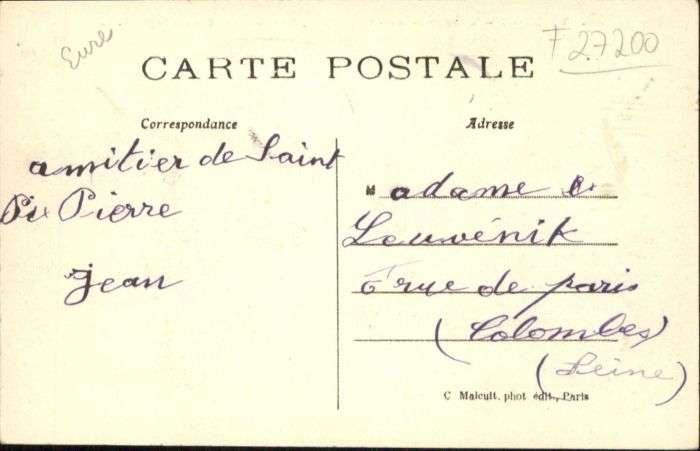 Eure
F 27200
CARTE POSTALE
Correspondance
Adresse
amitier de Saint
Pierre
Jean
Madame
Louvénik
6 rue de paris
(Colombes)
(Seine)
C Malcuit, phot édit., Paris